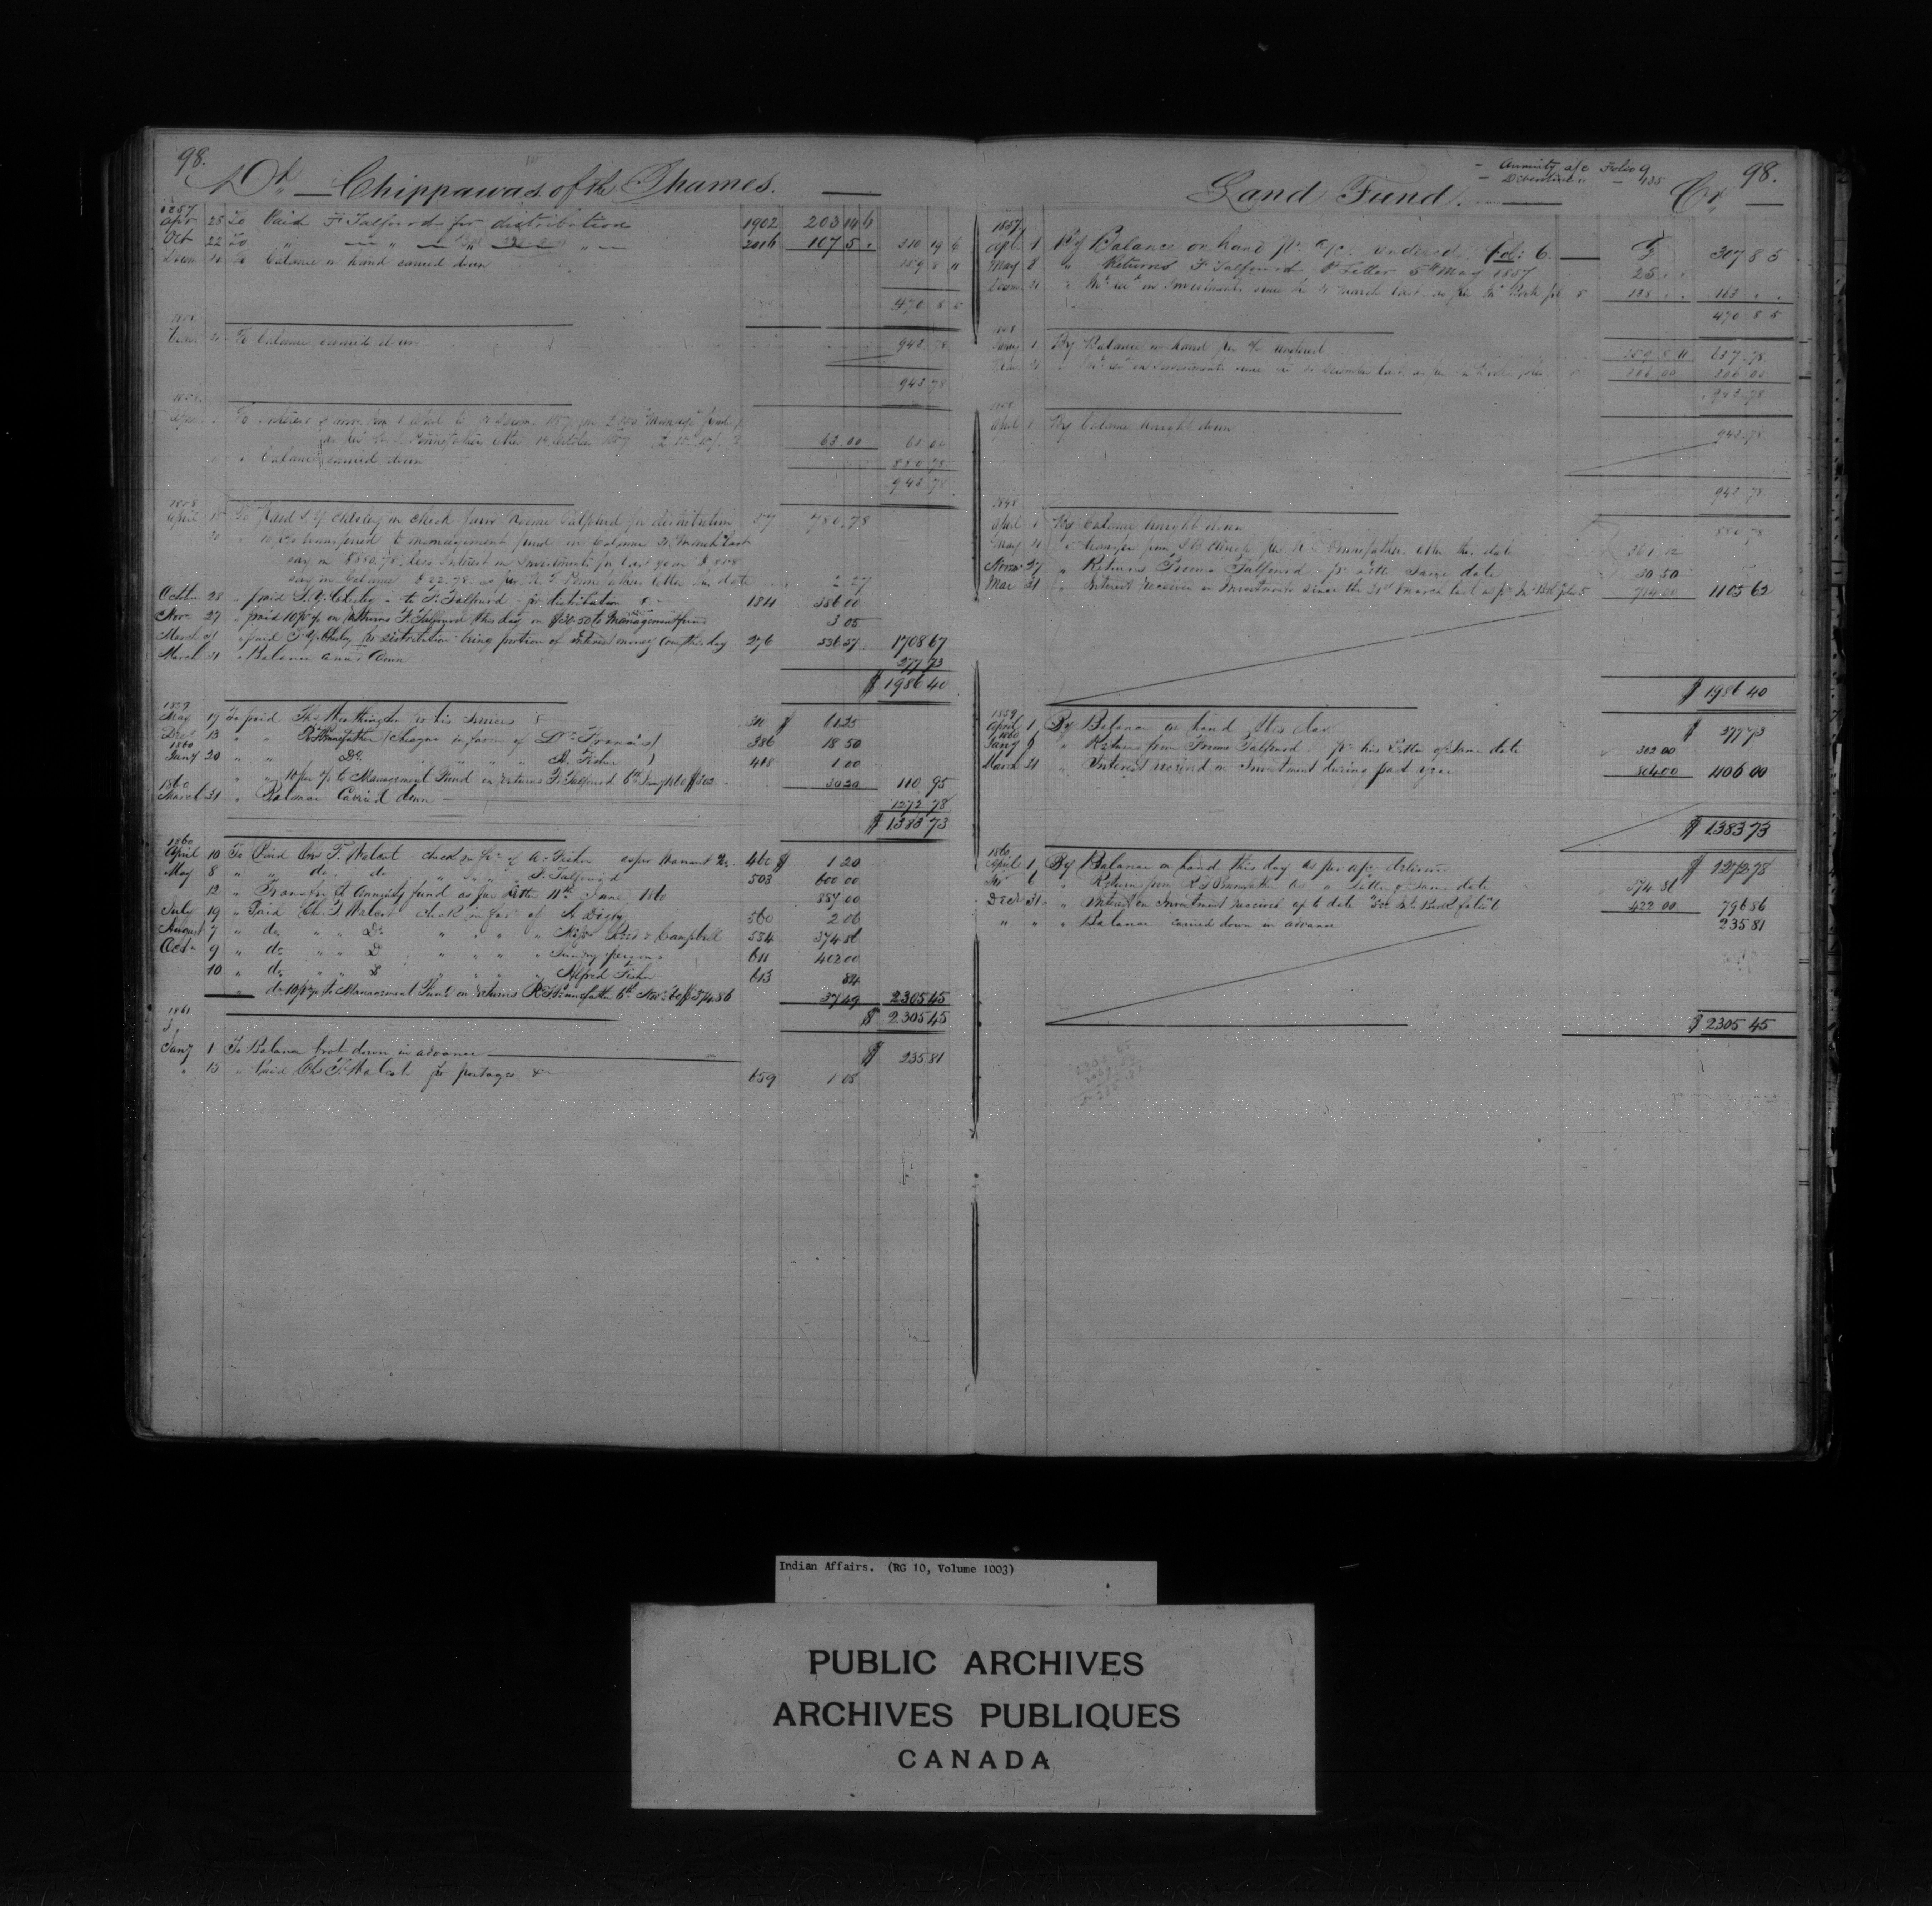 98.
Dr Chippawas of the Thames.
1857
Apr 28 To Paid F Talfourd for distribution 1902 203 14 6
Oct 22 To " " " 2016 107 5 " 310 19 6
Decem 31 To balance on hand carried down 159 8 11
470 8 5
1858
To balance carried down 942 78
942 78
1858
as per letter 14 October 1857 62 00 62 00
" balance carried down 880 78
942 78
1858
April To Paid S. Y. Chesley in check favor Froome Talfourd for distribution 57 780.78
20 " 10 transferred to management fund on balance 31 March last
say on $880.78, less Interest on Investments for last year $858
say on balance $22.78 as per R. T. Pennefathers letter this date 2.27
Octbr 28 " paid S. Y. Chesley to F. Talfourd for distribution 1811 386 00
Nov 27 " paid 10 pr % on returns F. Talfourd this day on $30.50 to Management fund 3 05
March 31 " paid S. Y. Chesley for distribution being portion of interest money this day 276 536 57 1708 67
March 31 " Balance carrd Down 277 73
$ 1986 40
1859
May 17 To paid for his services 311 $ 61 25
Decr 13 " " Pennefather (Cheque in favor of Dr Francis) 386 18 50
1860
Jany 20 " " Do " " " " A. Fisher ) 418 1 00
" " 10 per % to Management Fund on returns F. Talfourd 6th Jany 1860 $302 30 20 110 95
1860
March 31 " Balance Carried down 1272 78
$ 1383 73
1860
April 10 To Paid Chs T. Walcot check in fr of A. Fisher as per Warrant No. 460 $ 1 20
May 8 " " do " do " " " F. Talfourd 503 600 00
12 " Transfer to Annuity fund as per letter 11th June 1860 887 00
July 19 " Paid Chs T. Walcot check in favr of A. Digby 560 2 06
August 7 " do " " Do " " " " Messrs Reed & Campbell 584 374 86
Octr 9 " do " " D " " " Sundry persons 611 402 00
10 " do " " D " " " Alfred Fisher 613 84
" do 10 pr % to Management Fund on returns R. T. Pennefather 6th Novr 60 $374.86 37 49 2305 45
$ 2305 45
1861
Jany 1 To Balance brot down in advance $ 235 81
" 15 " Paid Chs T. Walcot for postages &c 659 1 08
Annuity a/c Folio 9
Debentures " 135
98.
Land Fund. Cr
1857
Apl 1 By Balance on hand pr a/c rendered fol: 6. 307 8 5
May 8 " Returns F Talfourd pr Letter 5th May 1857 25 " "
Decem 31 " Int. recd on Investments since the 31 March last as per Int Book fol. 5 138 " " 163 " "
470 8 5
1858
Jany 1 By Balance on hand per a/c rendered 159 8 11 637.78
306 00 306 00
942.78
1858
April 1 By balance brought down 942.78
942 78
April 1 By balance brought down 880 78
May " transfer from per R T Pennefathers letter this date 361.12
Novbr 27 " Returns Froome Talfourd pr letter same date 30 50
Mar 31 " Interest received on Investments since the 31st March last as pr Int Book folio 5 714 00 1105 62
$ 1986 40
1859
April 1 By Balance on hand this day $ 277 73
1860
Jany 9 " Returns from Froome Talfourd pr his Letter of same date 302 00
March 31 " Interest received on Investment during past year 804 00 1106 00
$ 1383 73
1860
April 1 By Balance on hand this day as per a/c delivered $ 1272 78
6 " Returns from R T Pennefather as " Letter of same date 374 86
Decr 31 " Interest on Investment received up to date See Int. Book folio 6 422 00 796 86
" " " Balance carried down in advance 235 81
$ 2305 45
Indian Affairs. (RG 10, Volume 1003)
PUBLIC ARCHIVES
ARCHIVES PUBLIQUES
CANADA